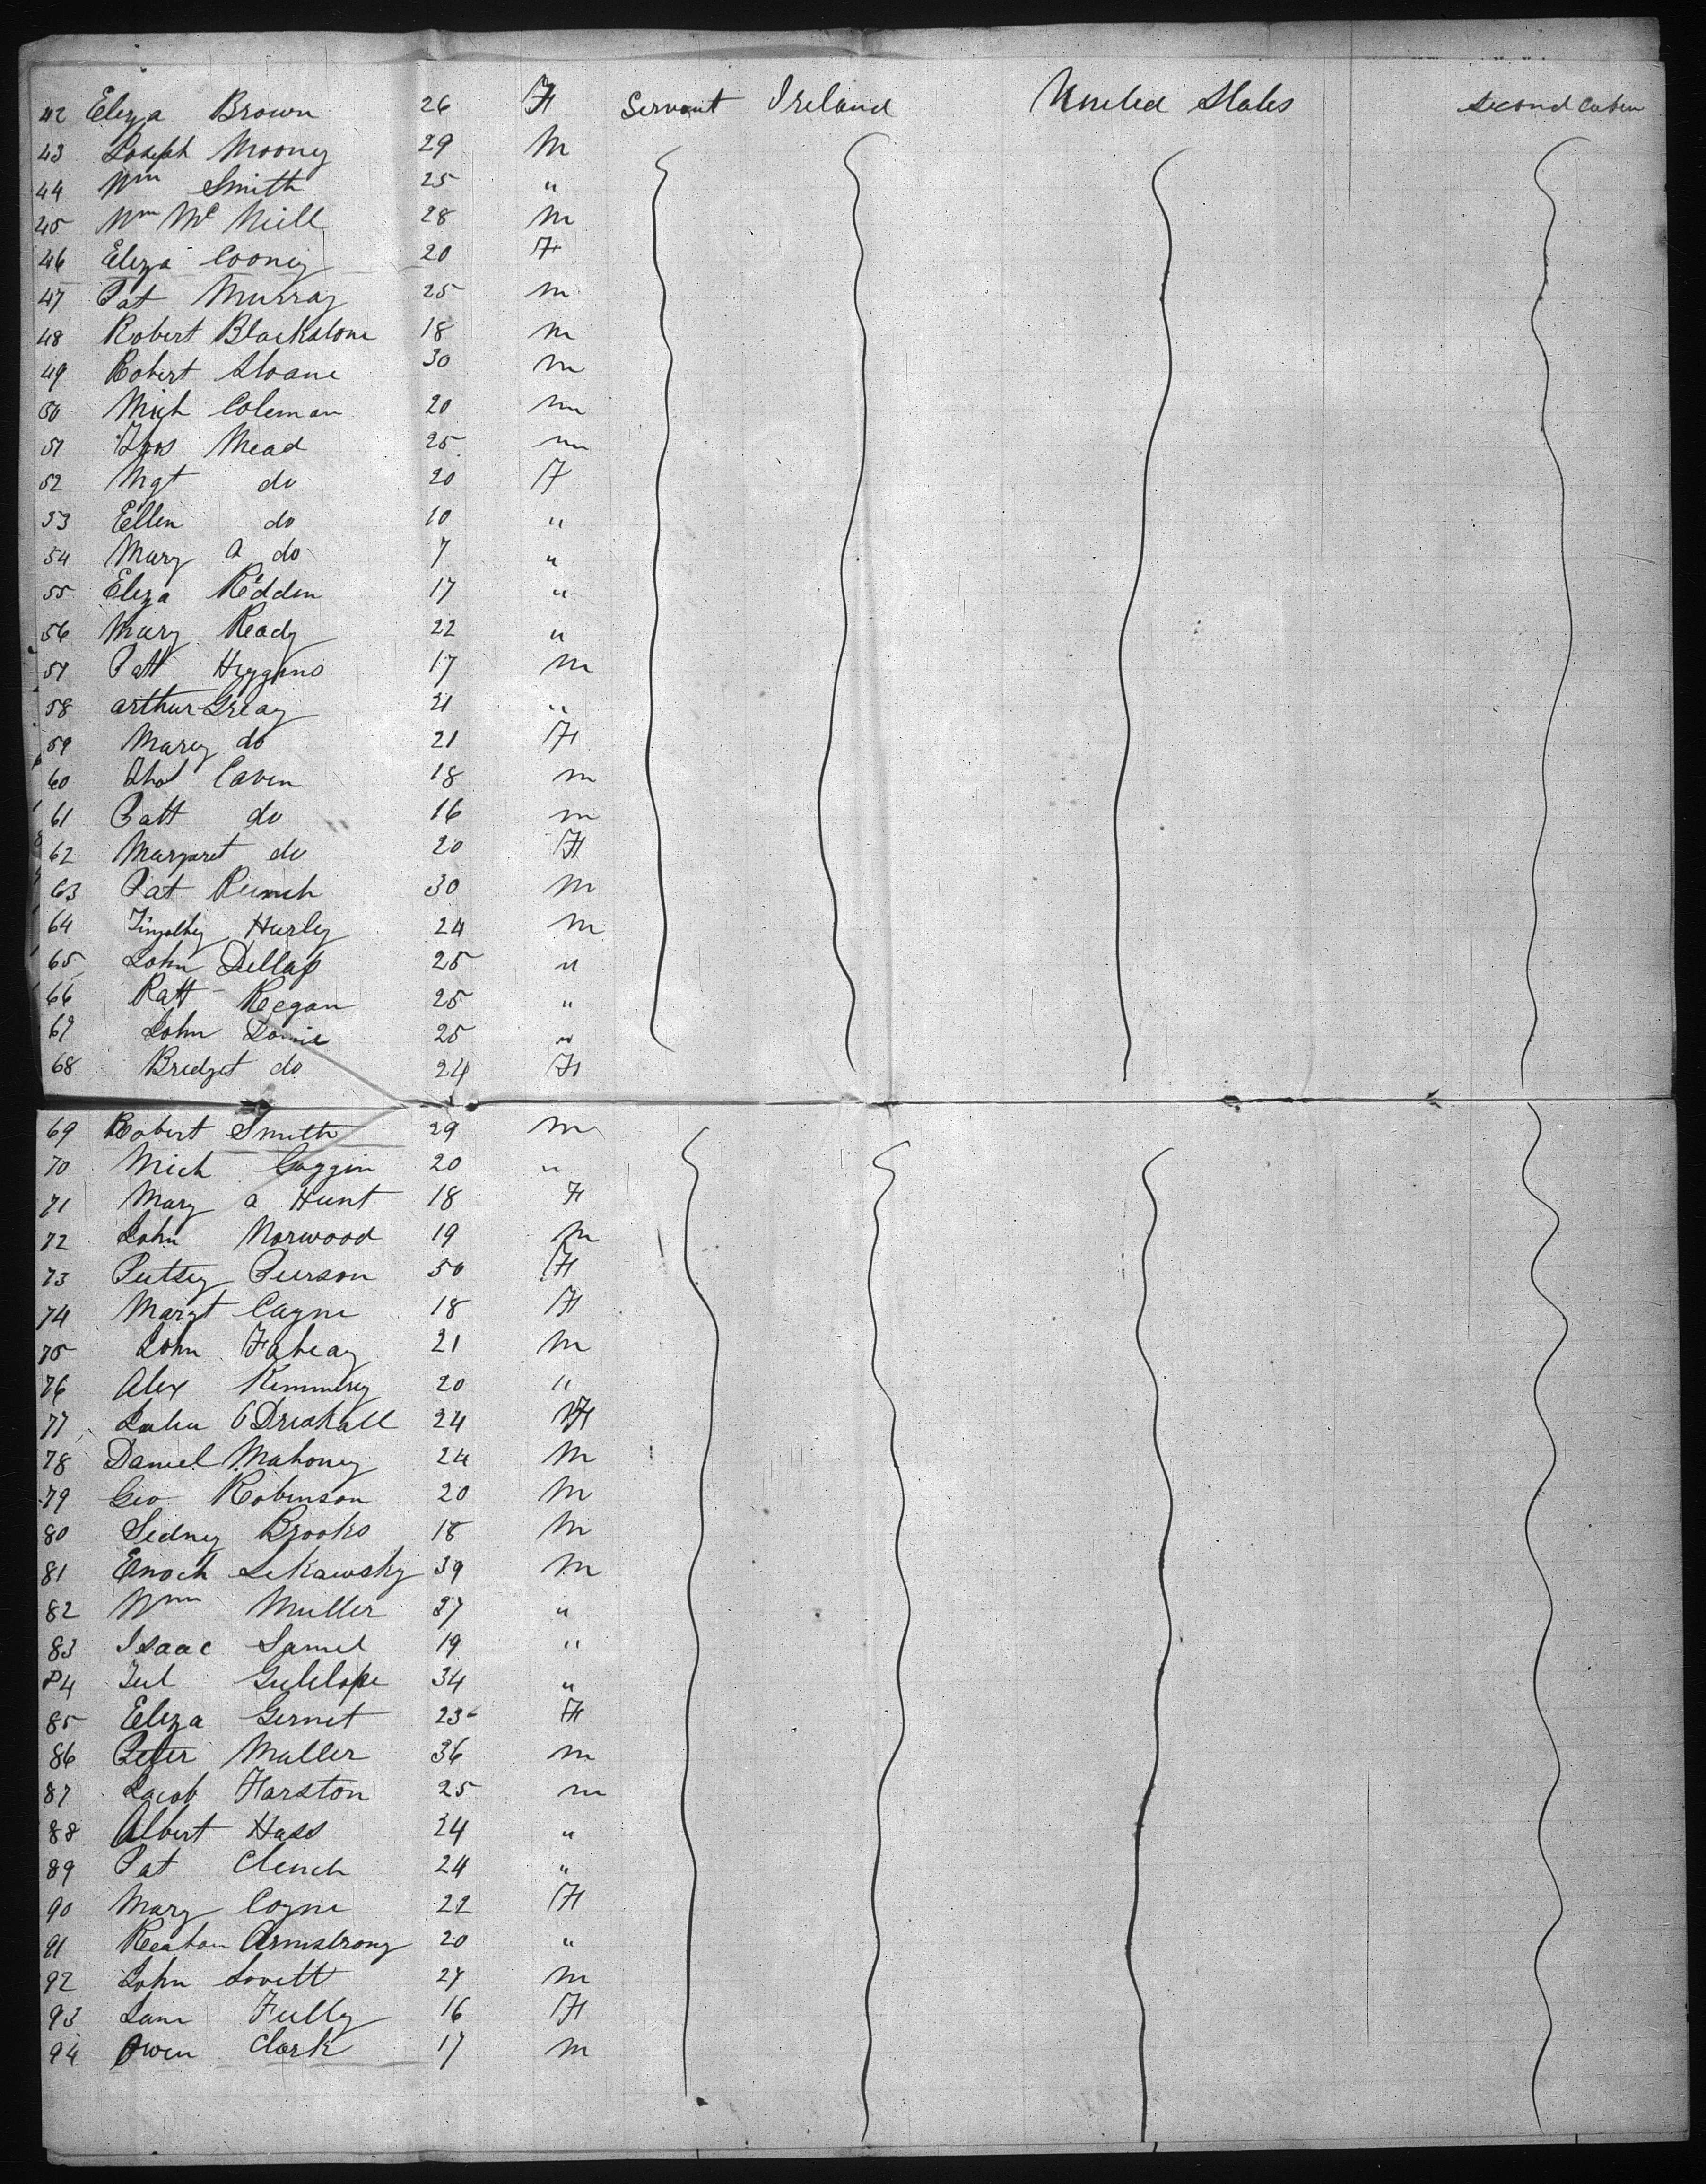 42 Eliza Brown 26 F Servant Ireland United States Second Cabin
43 Joseph Mooney 29 M
44 Wm Smith 25 "
45 Wm Mc Neill 28 M
46 Eliza Cooney 20 F
47 Pat Murray 25 M
48 Robert Blackstone 18 M
49 Robert Sloane 30 M
50 Mich Coleman 20 M
51 Thos Mead 25 M
52 Mgt do 20 F
53 Ellen do 10 "
54 Mary A do 7 "
55 Eliza Redden 17 "
56 Mary Ready 22 "
57 Patt Higgins 17 M
58 Arthur Greay 21 "
59 Mary do 21 F
60 Thos Caven 18 M
61 Patt do 16 M
62 Margaret do 20 F
63 Pat 30 M
64 Timothy Hurley 24 M
65 John Dellap 25 "
66 Patt Keegan 25 "
67 John 25 "
68 Bridget do 24 F
69 Robert Smith 29 M
70 Mich Goggin 20 "
71 Mary A Hunt 18 F
72 John Norwood 19 M
73 Pierson 50 F
74 Margt Cayne 18 F
75 John Faheay 21 M
76 Alex 20 "
77 O'Driskall 24 F
78 Daniel Mahoney 24 M
79 Geo Robinson 20 M
80 Sidney Brooks 18 M
81 Enoch 39 M
82 Wm Muller 37 "
83 Isaac 19 "
84 34 "
85 Eliza Gernet 23 F
86 Peter Muller 36 M
87 Jacob Harston 25 M
88 Albert Hass 24 "
89 Pat Clench 24 "
90 Mary Coyne 22 F
91 Armstrong 20 "
92 John Lovett 27 M
93 Jane Fully 16 F
94 Owen Clark 17 M